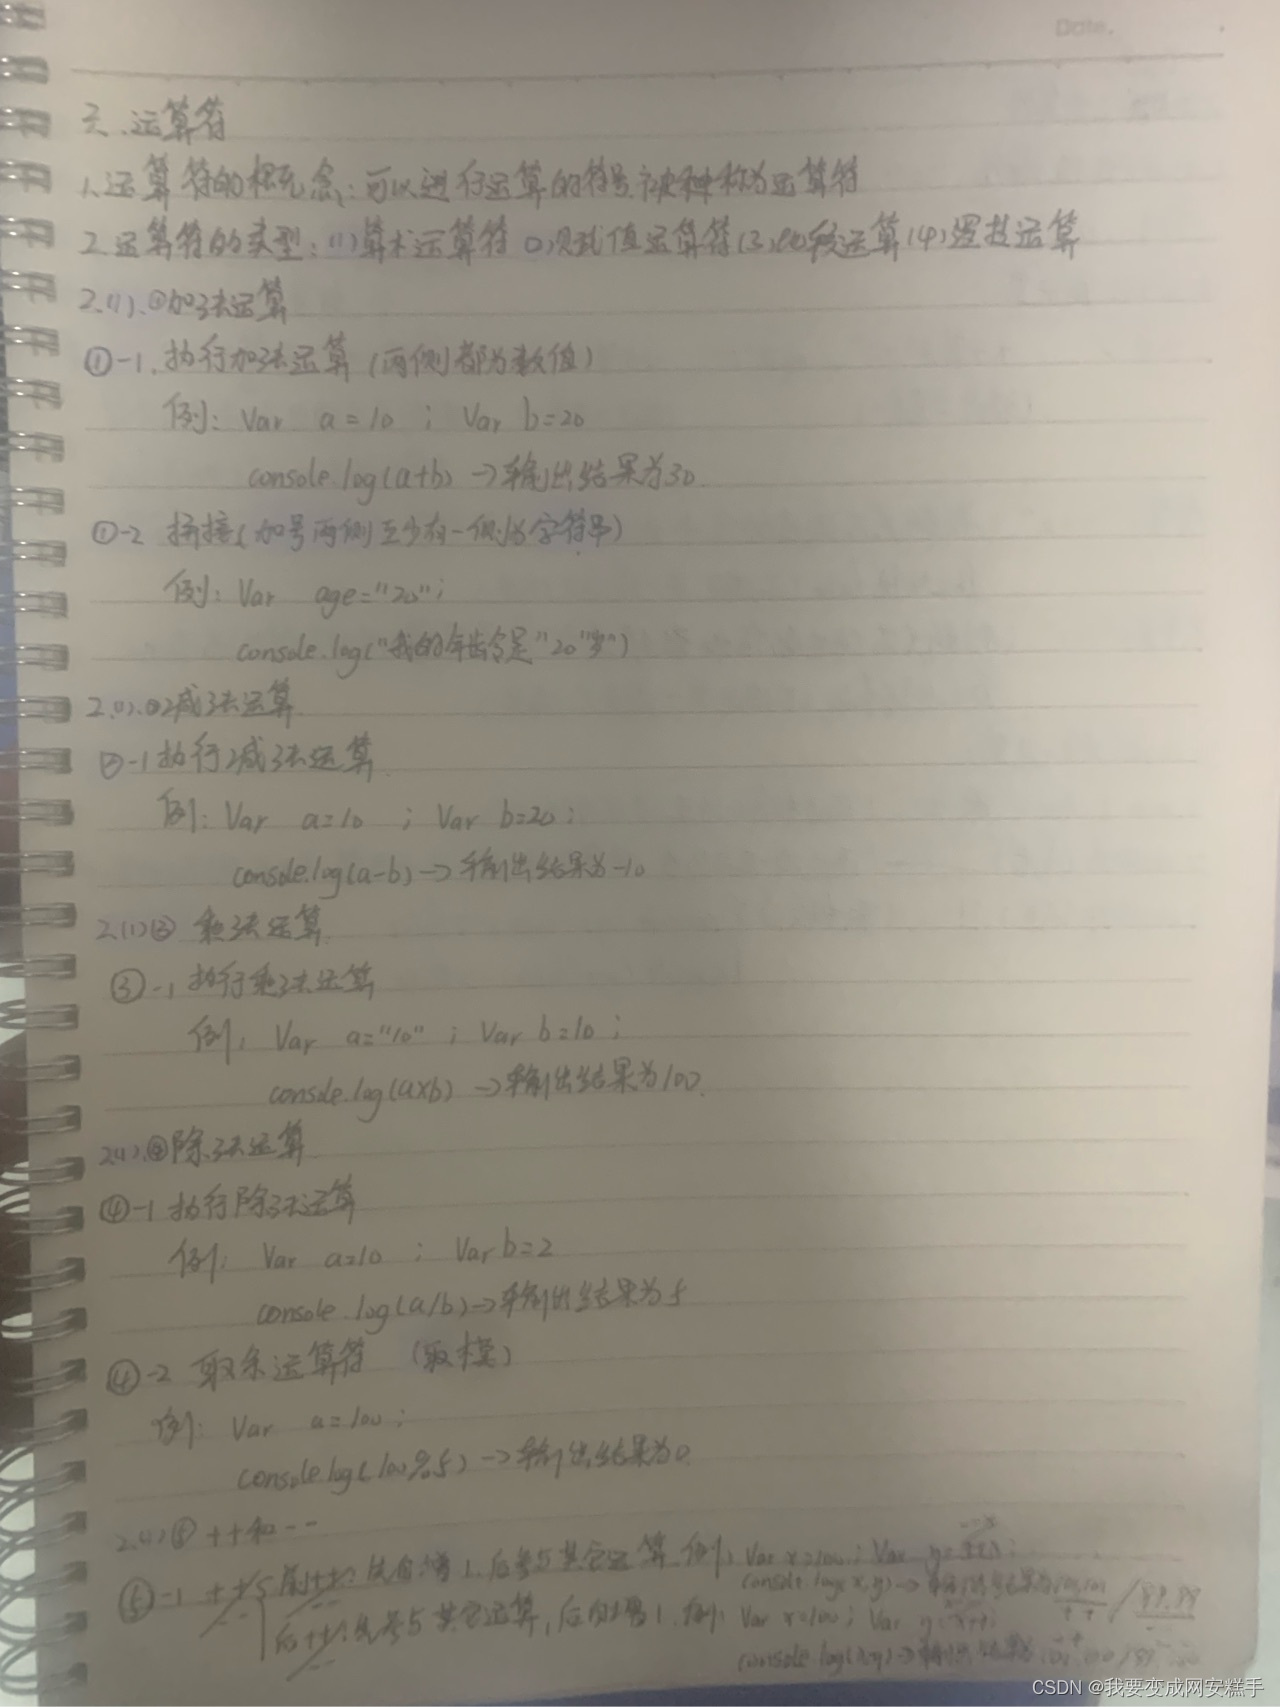 Date.
三、运算符
1.运算符的概念:可以进行运算的符号被称为运算符
2.运算符的类型:(1)算术运算符(2)赋值运算符(3)比较运算(4)逻辑运算
2.(1).①加法运算
①-1.执行加法运算(两侧都为数值)
例: Var a=10 ; Var b=20
console.log(a+b) →输出结果为30.
①-2 拼接(加号两侧至少有一侧为字符串)
例: Var age="20";
console.log("我的年龄是"20"岁")
2.(1).②减法运算
②-1执行减法运算
例: Var a=10 ; Var b=20;
console.log(a-b)→输出结果为-10
2.(1)③ 乘法运算
③-1 执行乘法运算
例: Var a="10" ; Var b=10;
console.log(a×b) →输出结果为100.
2.(1).④除法运算
④-1 执行除法运算
例: Var a=10 ; Var b=2
console.log(a/b)→输出结果为5
④-2 取余运算符 (取模)
例: Var a=100;
console.log(100%5)→输出结果为0.
2.(1)⑤ ++和--
⑤-1 ++ 前++:先自增1.后参与其它运算.例: Var x=100; Var y=
console.log(x,y)→输出结果为101,101 / 99,99
后++:先参与其它运算,后自增1.例: Var x=100; Var y=x++;
console.log(x,y)→输出结果为
CSDN @我要变成网安糕手